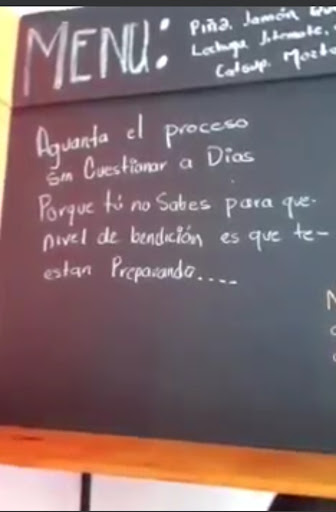 MENU:
Piña. Jamón
Lechuga Jitomate.
Catsup. Mosta
Aguanta el proceso
Sin Cuestionar a Dios
Porque tú no Sabes para que.
nivel de bendición es que te-
estan Preparando....